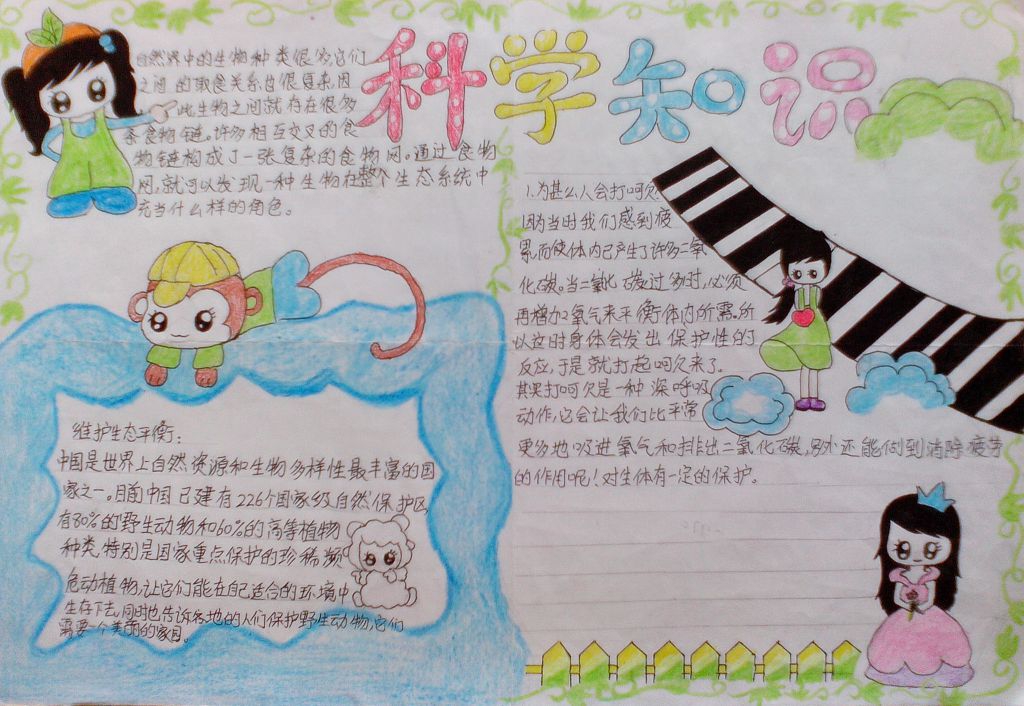 科学知识
自然界中的生物种类很多,它们
之间的取食关系也很复杂,因
此生物之间就存在很多
条食物链。许多相互交叉的食
物链构成了一张复杂的食物网。通过食物
网,就可以发现一种生物在整个生态系统中
充当什么样的角色。
维护生态平衡:
中国是世界上自然资源和生物多样性最丰富的国
家之一。目前中国已建有226个国家级自然保护区,
有80%的野生动物和60%的高等植物
种类,特别是国家重点保护的珍稀濒
危动植物,让它们能在自己适合的环境中
生存下去,同时也告诉各地的人们保护野生动物,它们
需要一个美丽的家园。
1.为甚么人会打呵欠
因为当时我们感到疲
累,而使体内已产生了许多二氧
化碳。当二氧化碳过多时,必须
再增加2氧气来平衡体内所需。所
以这时身体会发出保护性的
反应,于是就打起呵欠来了。
其实打呵欠是一种深呼吸
动作,它会让我们比平常
更多地吸进氧气和排出二氧化碳,另外还能做到消除疲劳
的作用呢!对生体有一定的保护。